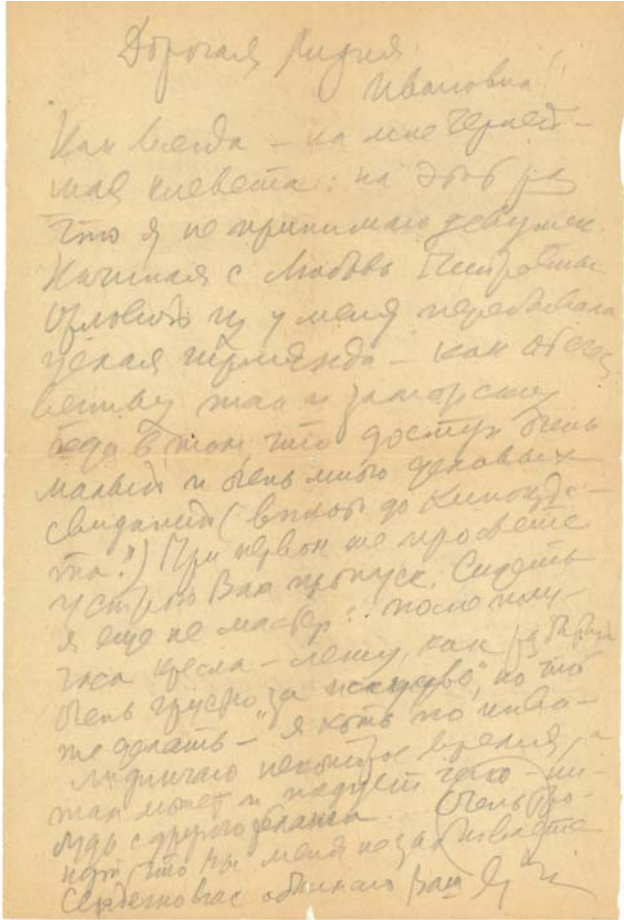 Дорогая Лидия
Ивановна!!
Как всегда – на мне черней-
шая клевета: на этот раз
что я не принимаю девушек.
Начиная с Любовь Петровны
Орловой у меня перебывала
целая гирлянда – как отечест
венную так и заморскую
беда в том, что доступ очень
малый и очень много деловых
свиданий (вплоть до Кинокоми-
тета!) При первом же просвете
устрою Вам пропуск. Сидеть
я еще не мастер: после полу-
часа кресла – лежу, как
Очень грустно за "искусство", но что
же делать – я хоть по
некоторое время, а
там может и чего-ни-
будь с другого
что Вы меня не забываете
Сердечно Вас обнимаю Ваш